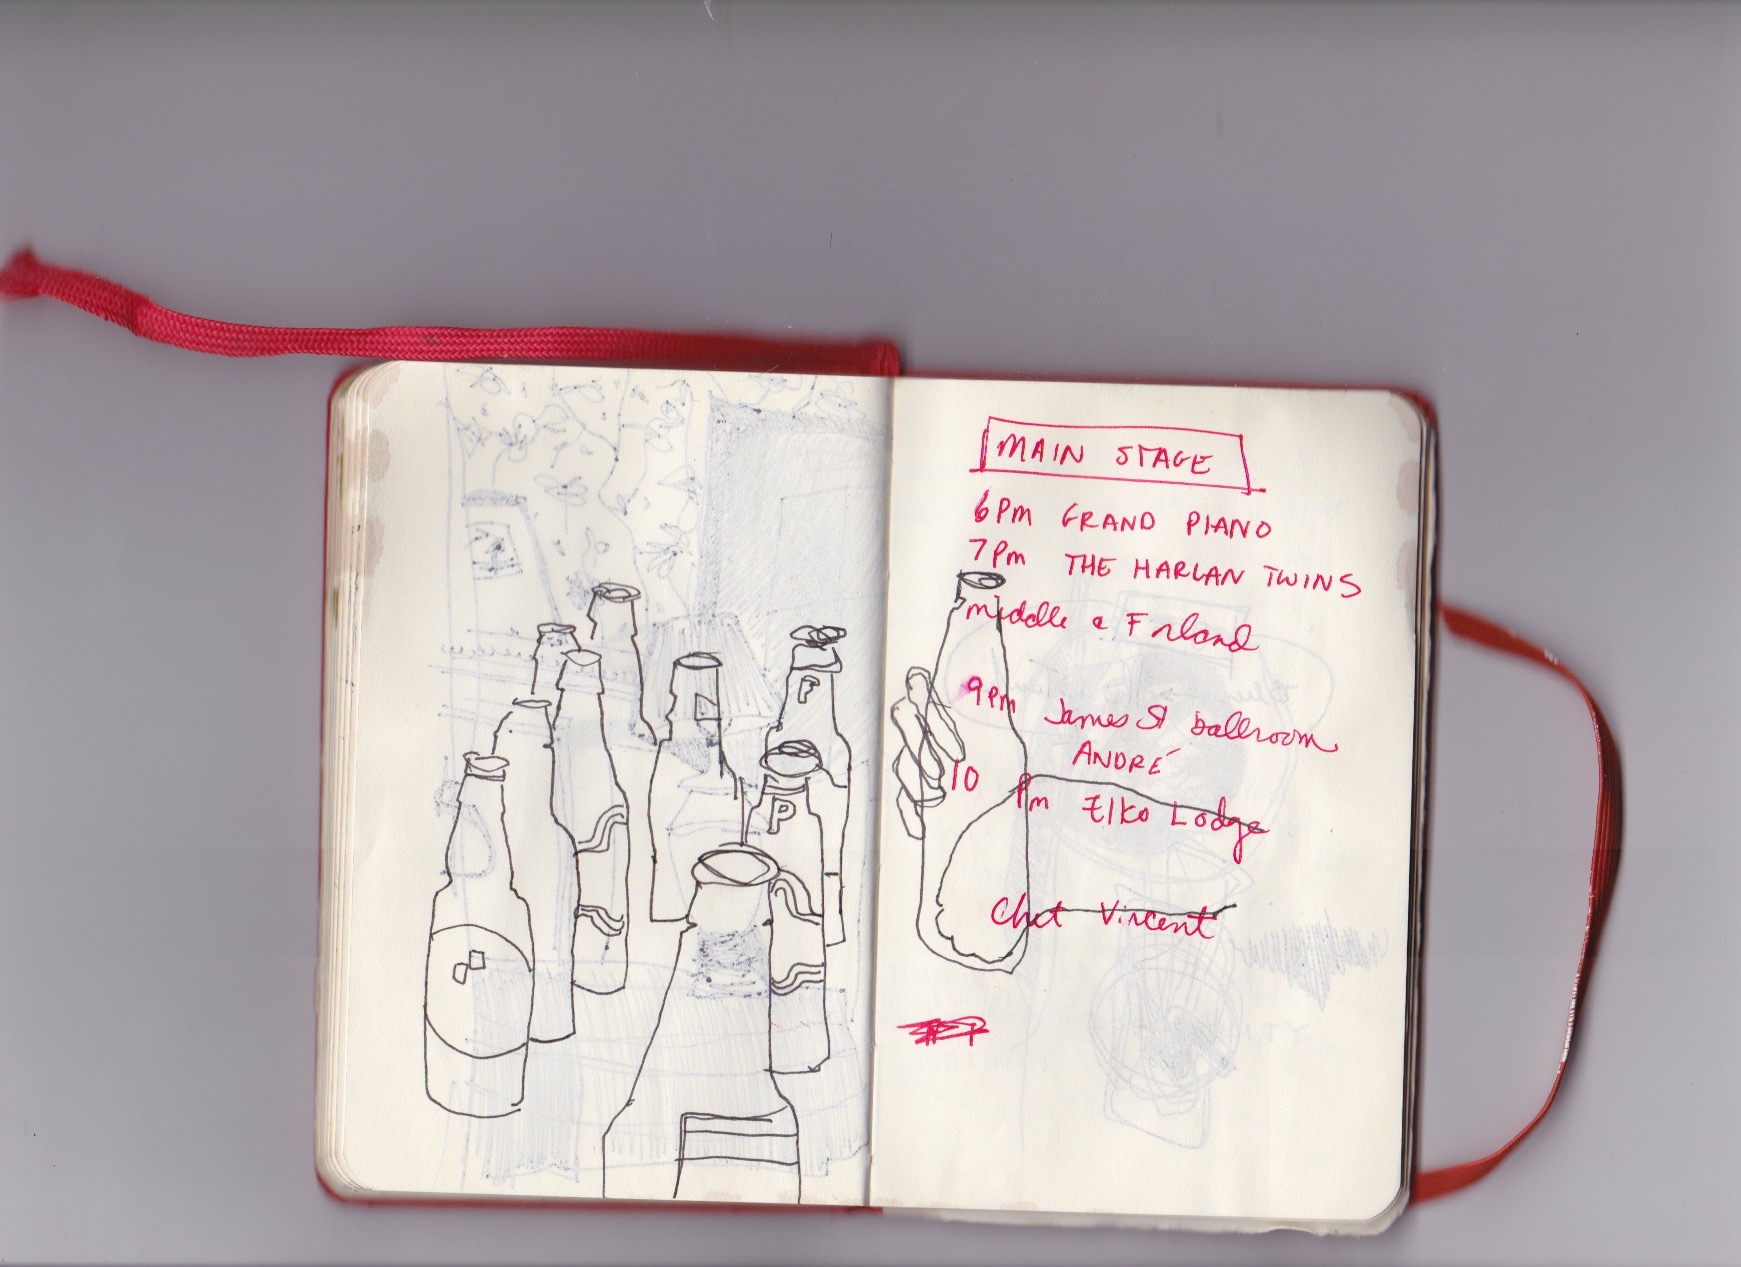 F
P
MAIN STAGE
6PM GRAND PIANO
7Pm THE HARLAN TWINS
middle e
9pm James St ballroom
ANDRÉ
10 Pm Elko Lodge
Chet Vincent